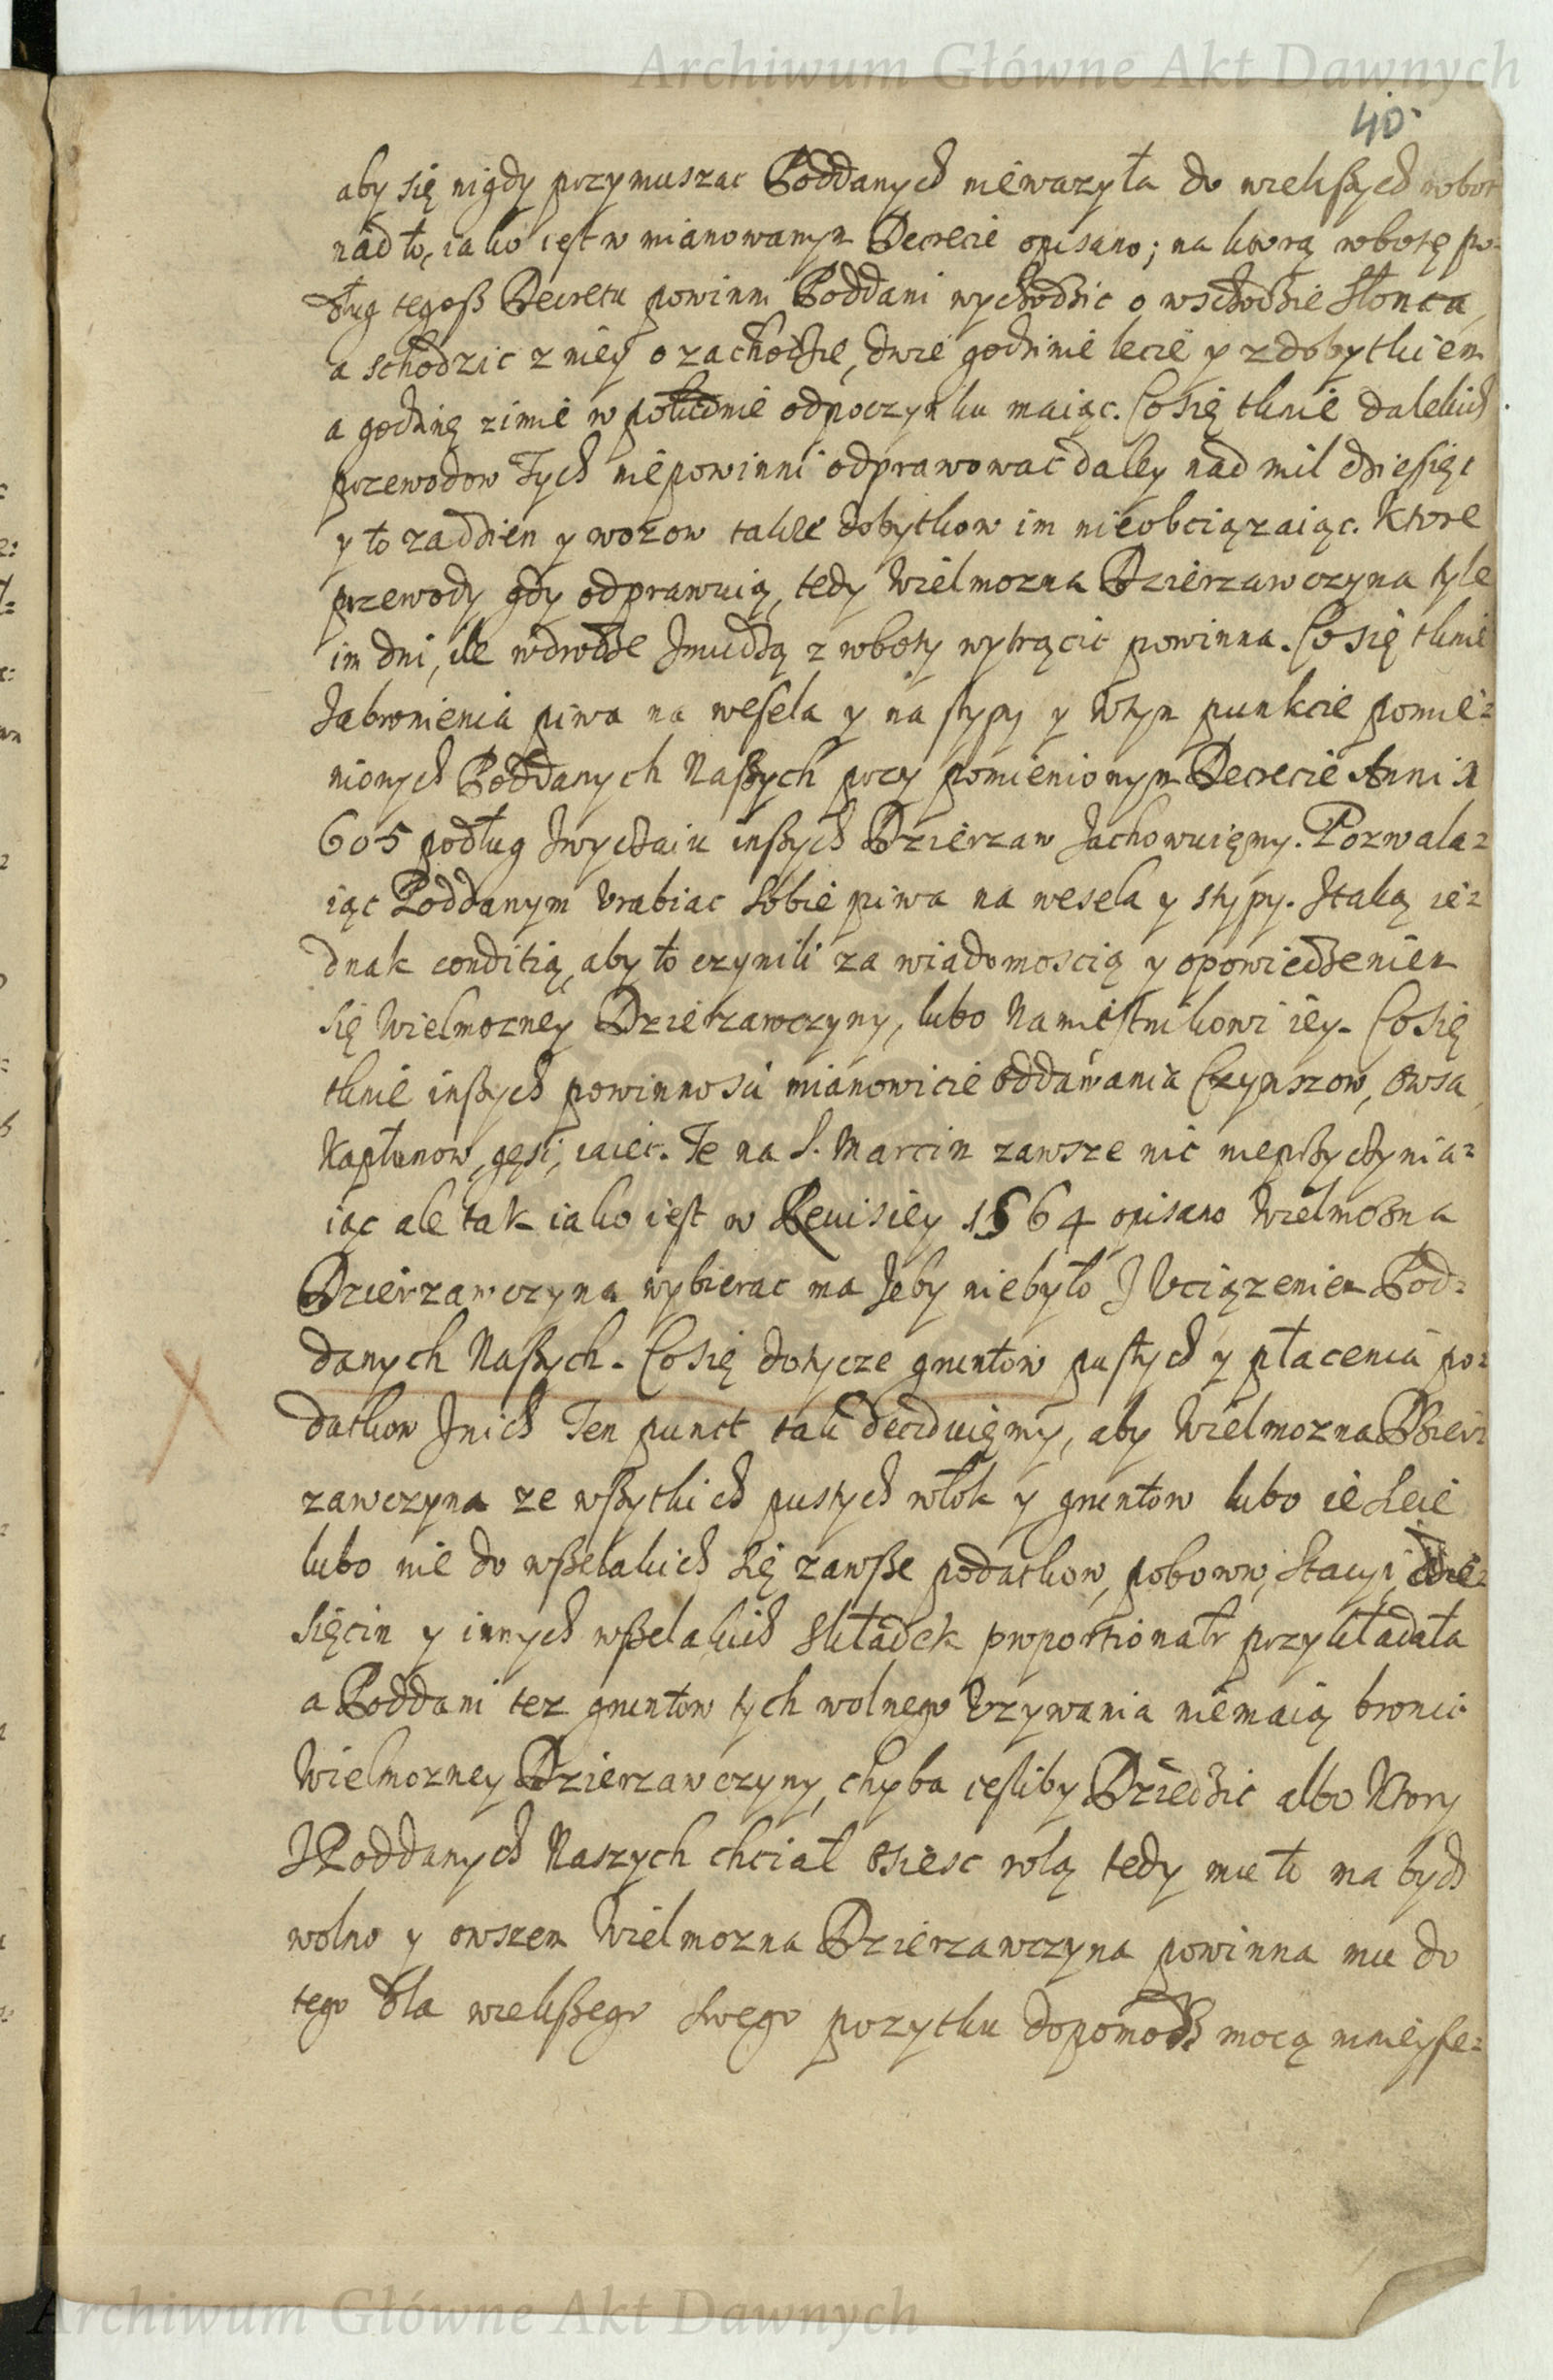 Archiwum Główne Akt Dawnych
40
aby się nigdy przymuszac Poddanych niewazyła do wiekszych robot
nad to, iako iest w mianowanym Decrecie opisano; na ktorą robotę po-
dług tegosz Decretu powinni Poddani wychodzic o wschodzie słonca,
a schodzic z niey o zachodzie, dwie godzinie lecie y z dobytkiem
a godzinę zimie w południe odpoczynku maiąc. Co się tknie dalekich
przewodow Tych niepowinni odprawowac daley nad mil dziesięc
y to za dzien y wozow takze dobytkow im nieobciązaiąc. Ktore
przewody gdy odprawuią, tedy Wielmozna Dzierzawczyna tyle
im dni, ile w drodze zmudzą z roboty wytrącic powinna. Co się tknie
Zabronienia piwa na wesela y na stypy y w tym punkcie pomie-
nionych Poddanych Naszych przy pomienionym Decrecie Anni 1
605 podług zwyczaiu inszych Dzierzaw zachowuięmy. Pozwala-
iąc Poddanym vrabiac sobie piwa na wesela y stypy. Z taką ie-
dnak conditią, aby to czynili za wiadomoscią y opowiedzeniem
się Wielmozney Dzierzawczyny, lubo Namiestnikowi iey. Co się
tknie inszych powinnosci mianowicie oddawania Czynszow, owsa,
Kapłunow, gęsi, iaiec. Te na S. Marcin zawsze nic nieprzyczynia-
iąc ale tak iako iest w Reuisiey 1564 opisano Wielmozna
Dzierzawczyna wybierac ma zeby niebyło z Vciązeniem Pod-
danych Naszych. Co się dotycze gruntow pustych y płacenia po-
datkow z nich Ten punct tak deciduięmy, aby Wielmozna Dzier-
zawczyna ze wszytkich pustych włok y gruntow lubo ie sieie
lubo nie do wszelakich się zawsze podatkow, poborow, Stacyi, dzie-
sięcin y innych wszelakich składek proportionatr przykładała
a Poddani tez gruntow tych wolnego Vzywania niemaią bronic
Wielmozney Dzierzawczyny, chyba iesliby Dziedzic albo Ktory
z Poddanych Naszych chciał osiesc rolą tedy mu to ma bydz
wolno y owszem Wielmozna Dzierzawczyna powinna mu do
tego dla wiekszego swego pozytku dopomodz mocą ninieysze-
Archiwum Główne Akt Dawnych